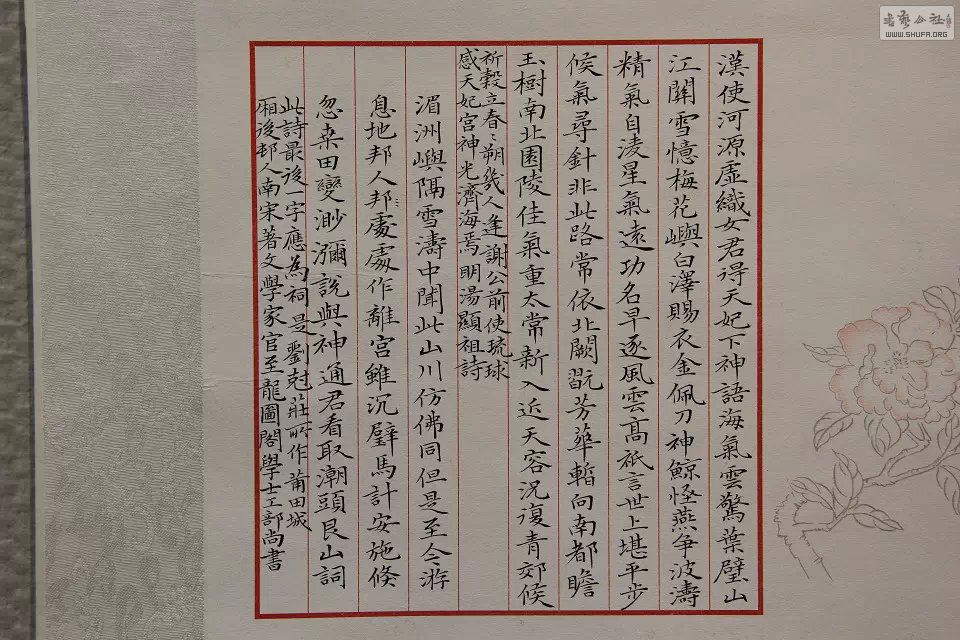 漢使河源虛織女君得天妃下神語海氣雲驚葉壁山
江關雪憶梅花嶼白澤賜衣金佩刀神鯨怪燕爭波濤
精氣自淩星氣遠功名早逐風雲高祇言世上堪平步
候氣尋針非此路常依北闕翫芳華暫向南都瞻
玉樹南北園陵佳氣重太常新入近天容況復青郊候
祈穀立春春朔幾人逢謝公前使琉球
感天妃宮神光濟海焉明湯顯祖詩
湄洲嶼隔雪濤中聞此山川仿佛同但是至今游
息地邦人邦處處作離宮雖沉壁馬計安施倏
忽桒田變渺瀰說與神通君看取潮頭艮山詞
此詩最後一字應為祠是劉尅莊所作莆田城
廂後邨人南宋著文學家官至龍圖閣學士工部尚書
書藝公社
WWW.SHUFA.ORG